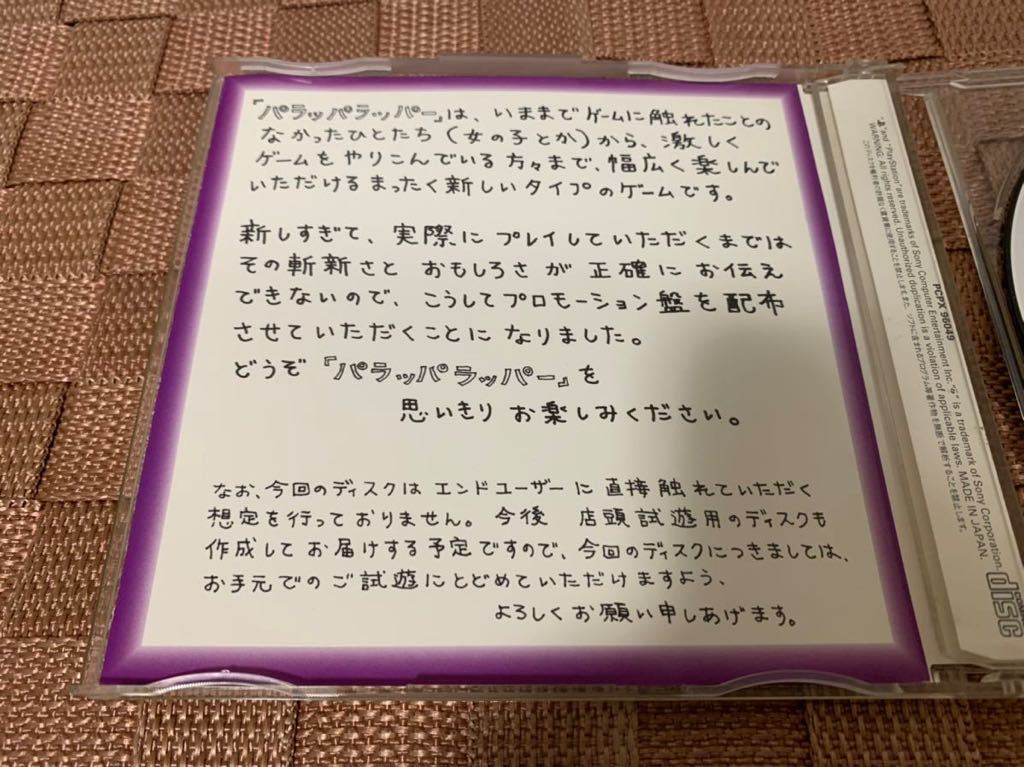 『パラッパラッパー』は、いままでゲームに触れたことの
なかったひとたち（女の子とか）から、激しく
ゲームをやりこんでいる方々まで、幅広く楽しんで
いただけるまったく新しいタイプのゲームです。
新しすぎて、実際にプレイしていただくまでは
その斬新さと おもしろさが 正確に お伝え
できないので、こうしてプロモーション盤を配布
させていただくことに なりました。
どうぞ『パラッパラッパー』を
思いきり お楽しみください。
なお、今回のディスクは エンドユーザーに 直接触れていただく
想定を行っておりません。今後 店頭試遊用のディスクも
作成して お届けする予定ですので、今回のディスクにつきましては、
お手元での ご試遊にとどめていただけますよう、
よろしくお願い申しあげます。
PCPX 96049
and "PlayStation" are trademarks of Sony Computer Entertainment Inc. " " is a trademark of Sony Corporation.
WARNING: All rights reserved. Unauthorized duplication is a violation of applicable laws. MADE IN JAPAN.
このディスクを権利者の許諾なく賃貸業に使用することを禁止します。また、ソフトに含まれるプログラム等著作物を無断で解析することを禁止します。
disc